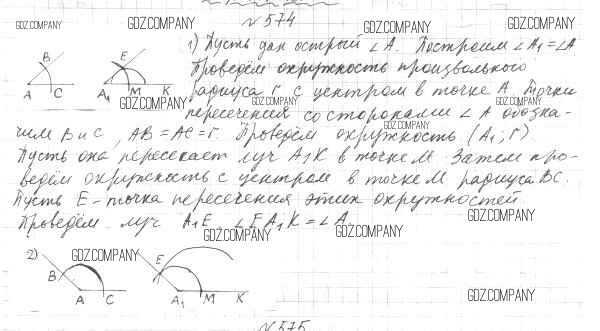 GDZ.COMPANY GDZ.COMPANY GDZ.COMPANY GDZ.COMPANY
№574
1) Пусть дан острый ∠A. Построим ∠A₁=∠A
Проведём окружность произвольного
радиуса r с центром в точке A. Точки
GDZ.COMPANY GDZ.COMPANY GDZ.COMPANY
пересечения со сторонами ∠A обозна-
GDZ.COMPANY
чим B и C, AB=AC=r. Проведём окружность (A₁; r)
Пусть она пересекает луч A₁K в точке M. Затем про-
ведём окружность с центром в точке M радиуса BC.
Пусть E - точка пересечения этих окружностей
GDZ.COMPANY
Проведём луч A₁E ∠EA₁K=∠A.
GDZ.COMPANY GDZ.COMPANY
B E
A C A₁ M K
2) GDZ.COMPANY
B E
A C A₁ M K
GDZ.COMPANY
№575